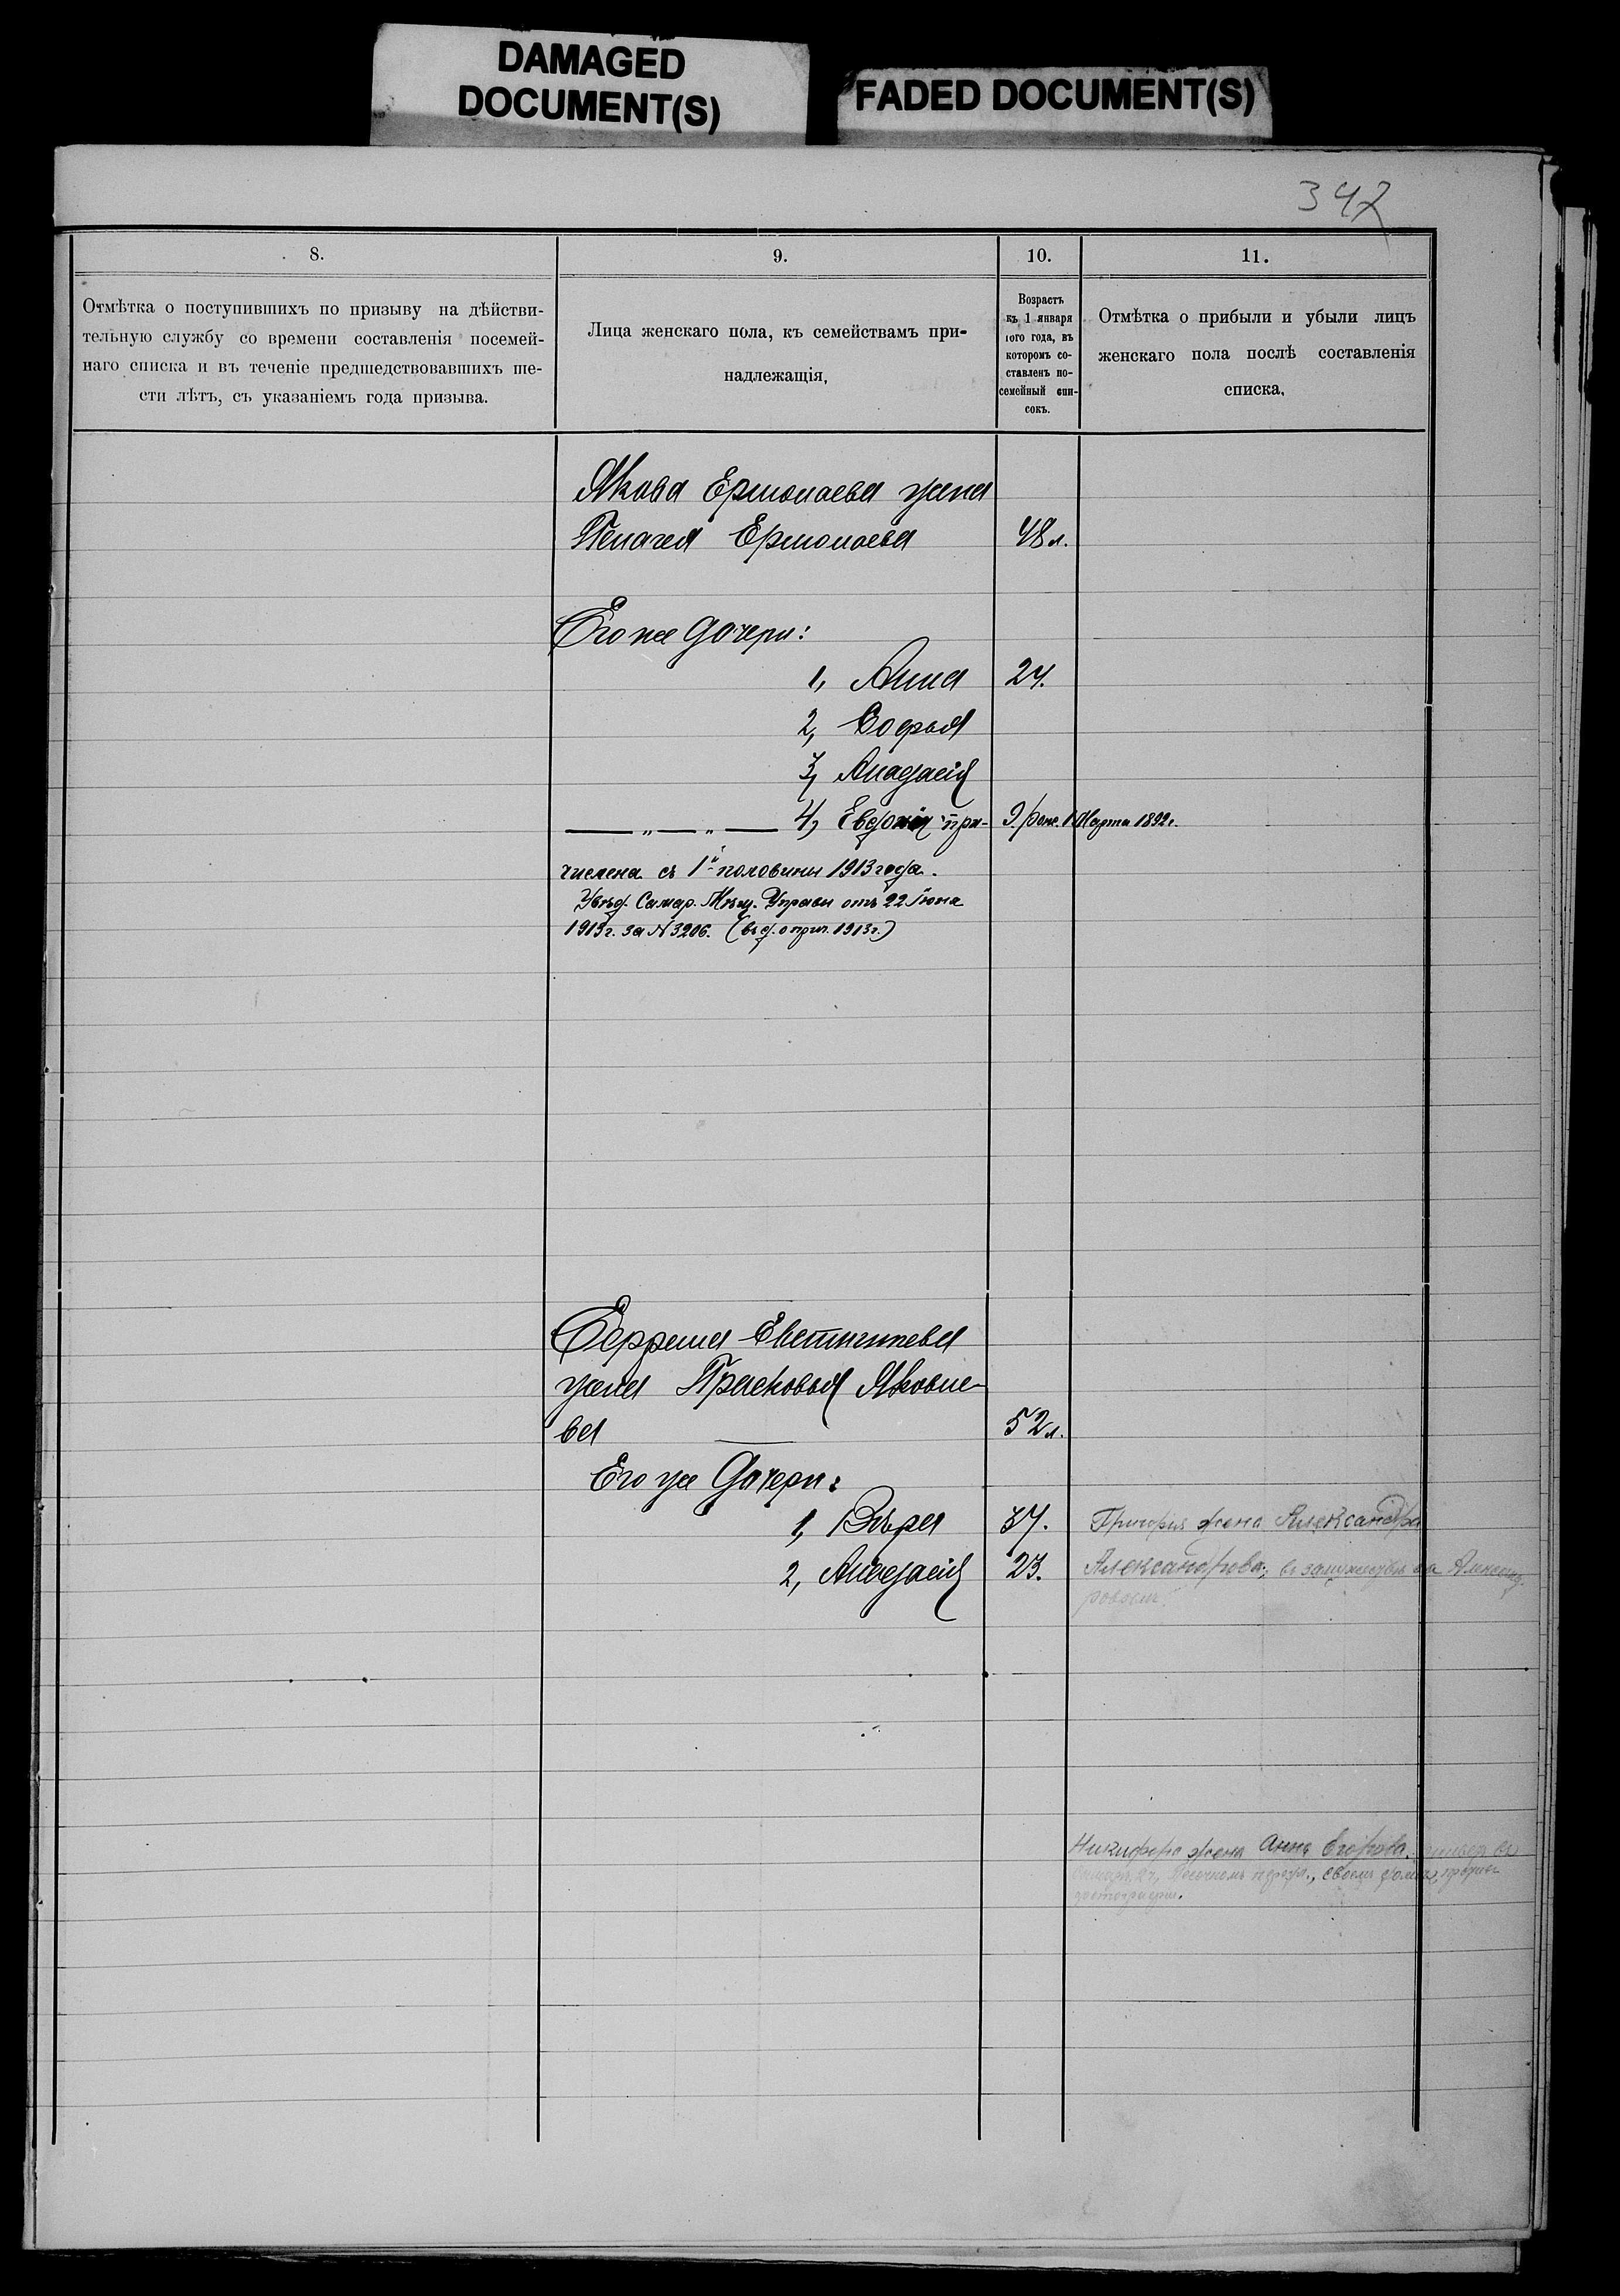 DAMAGED
DOCUMENT(S)
FADED DOCUMENT(S)
342
8.
9.
10.
11.
Отмѣтка о поступившихъ по призыву на дѣйстви-
тельную службу со времени составленія посемей-
наго списка и въ теченіе предшедствовавшихъ ше-
сти лѣтъ, съ указаніемъ года призыва.
Лица женскаго пола, къ семействамъ при-
надлежащія,
Возрастъ
къ 1 января
того года, въ
которомъ со-
ставленъ по-
семейный спи-
сокъ.
Отмѣтка о прибыли и убыли лицъ
женскаго пола послѣ составленія
списка,
Якова Ермолаева жена
Пелагея Ермолаева 48 л.
Его же дочери:
1, Анна 24.
2, Софья
3,
4, при- 9. 1 Марта 1892 г.
числена съ 1й половины 1913 года.
Увѣд. Самар. Мѣщ. Управы отъ 22 Іюна
1913 г. за № 3206. (въ д. о прич. 1913 г.)
Ефрема Евстигнѣева
жена Прасковья Яковле-
ва 52 л.
Его же Дочери:
1, Вѣра 34. Григорія жена Александра
2, 23. Александрова, въ замужествѣ за
Никифора жена Анна Егорова.
своемъ домѣ,